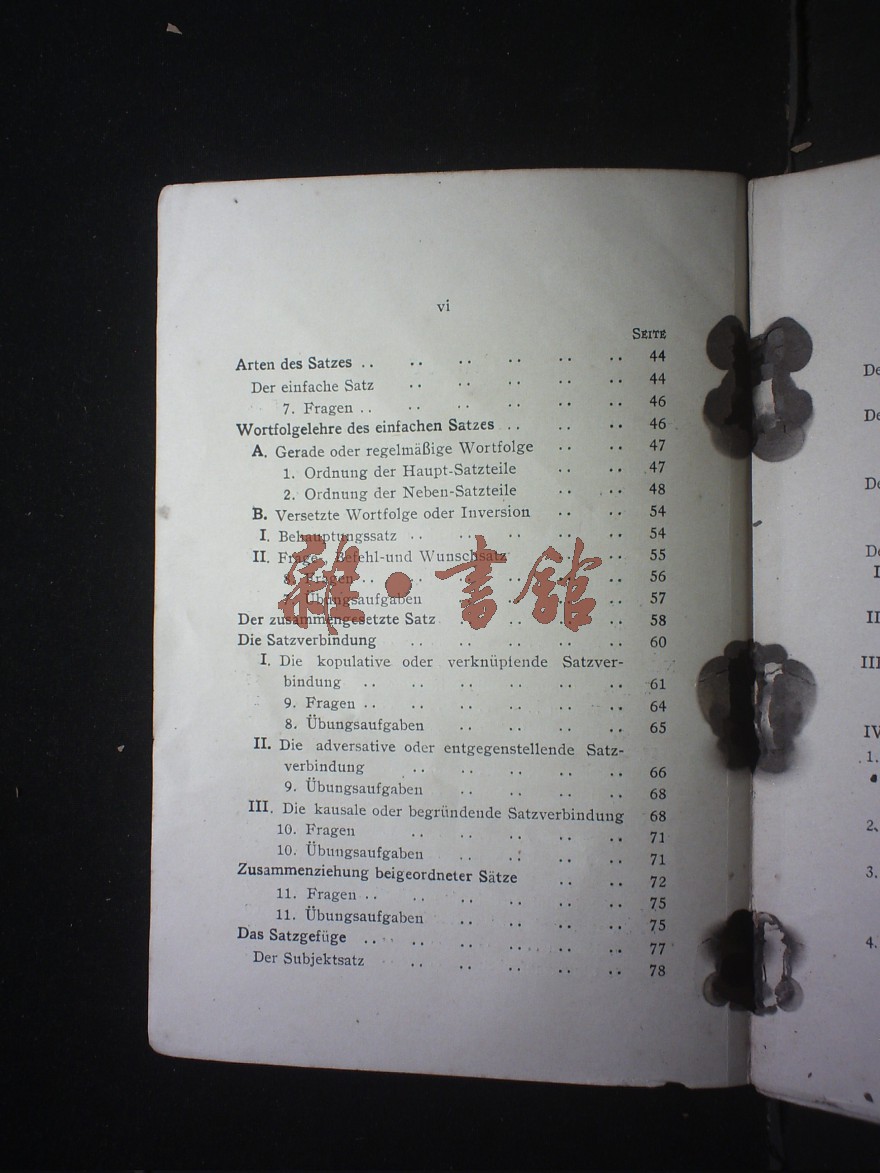 vi
SEITE
Arten des Satzes .. .. .. .. .. .. 44
Der einfache Satz .. .. .. .. .. 44
7. Fragen .. .. .. .. .. .. 46
Wortfolgelehre des einfachen Satzes .. .. .. 46
A. Gerade oder regelmäßige Wortfolge .. .. 47
1. Ordnung der Haupt-Satzteile .. .. 47
2. Ordnung der Neben-Satzteile .. .. 48
B. Versetzte Wortfolge oder Inversion .. .. 54
I. Behauptungssatz .. .. .. .. .. 54
II. Frage- Befehl-und Wunschsatz .. .. 55
8. Fragen .. .. .. .. .. .. 56
7. Übungsaufgaben .. .. .. .. 57
Der zusammengesetzte Satz .. .. .. .. 58
Die Satzverbindung .. .. .. .. .. 60
I. Die kopulative oder verknüpfende Satzver-
bindung .. .. .. .. .. .. 61
9. Fragen .. .. .. .. .. .. 64
8. Übungsaufgaben .. .. .. .. 65
II. Die adversative oder entgegenstellende Satz-
verbindung .. .. .. .. .. 66
9. Übungsaufgaben .. .. .. .. 68
III. Die kausale oder begründende Satzverbindung 68
10. Fragen .. .. .. .. .. 71
10. Übungsaufgaben .. .. .. .. 71
Zusammenziehung beigeordneter Sätze .. .. 72
11. Fragen .. .. .. .. .. .. 75
11. Übungsaufgaben .. .. .. .. 75
Das Satzgefüge .. .. .. .. .. .. 77
Der Subjektsatz .. .. .. .. .. 78
雜·書館
De
De
De
De
I
II
III
IV
1.
2.
3.
4.